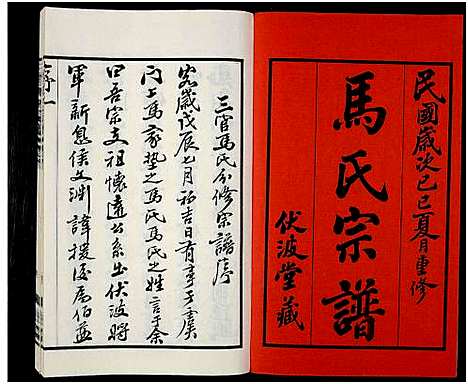 民國歲次己巳夏月重修
馬氏宗譜
伏波堂藏
三官馬氏分修宗譜序
客歲戊辰七月初吉日有事于虞
門上馬家墊之馬氏馬氏之姓言于余
曰吾宗支祖懷遠公系出伏波將
軍新息侯文淵諱援後爲伯益
序一